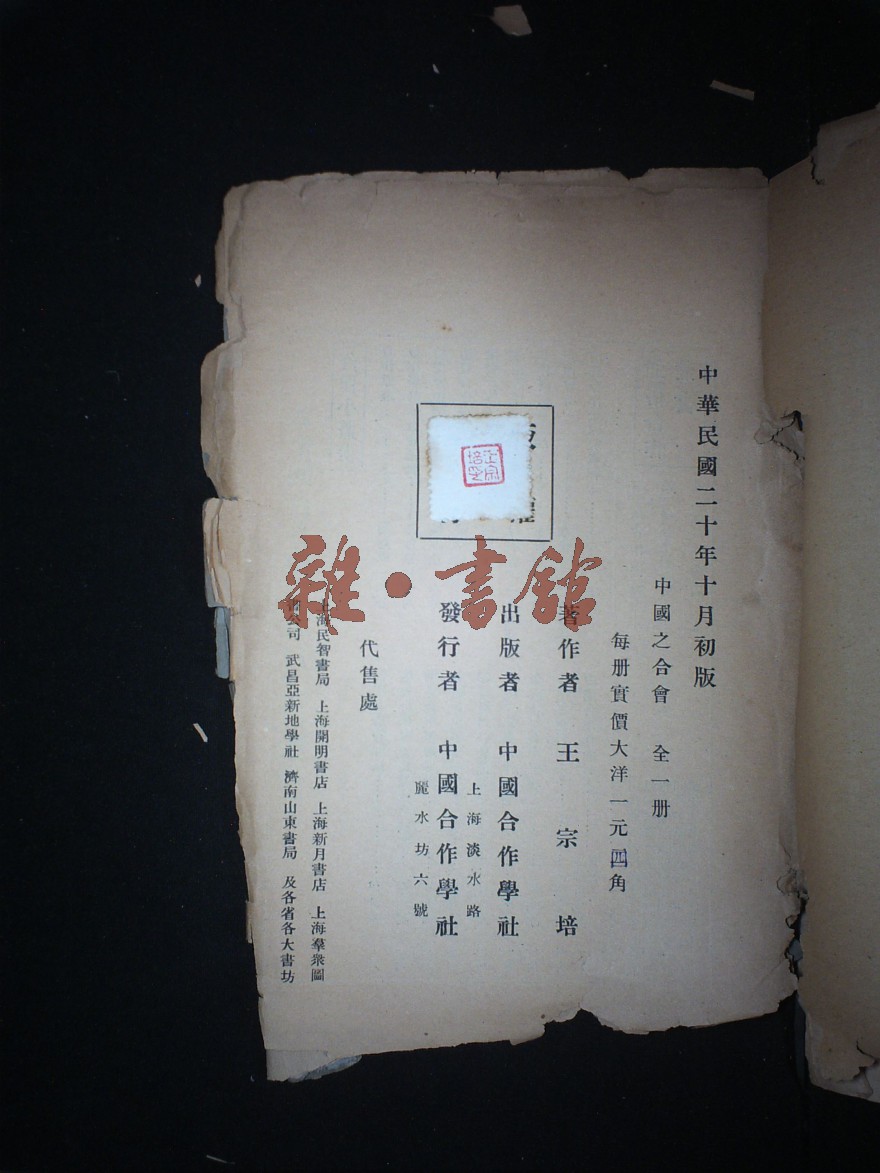 中華民國二十年十月初版
中國之合會 全一册
每册實價大洋一元四角
著作者 王宗培
出版者 中國合作學社
上海淡水路
發行者 中國合作學社
麗水坊六號
代售處
上海民智書局 上海開明書店 上海新月書店 上海羣衆圖
書公司 武昌亞新地學社 濟南山東書局 及各省各大書坊
權
王宗培
雜·書館